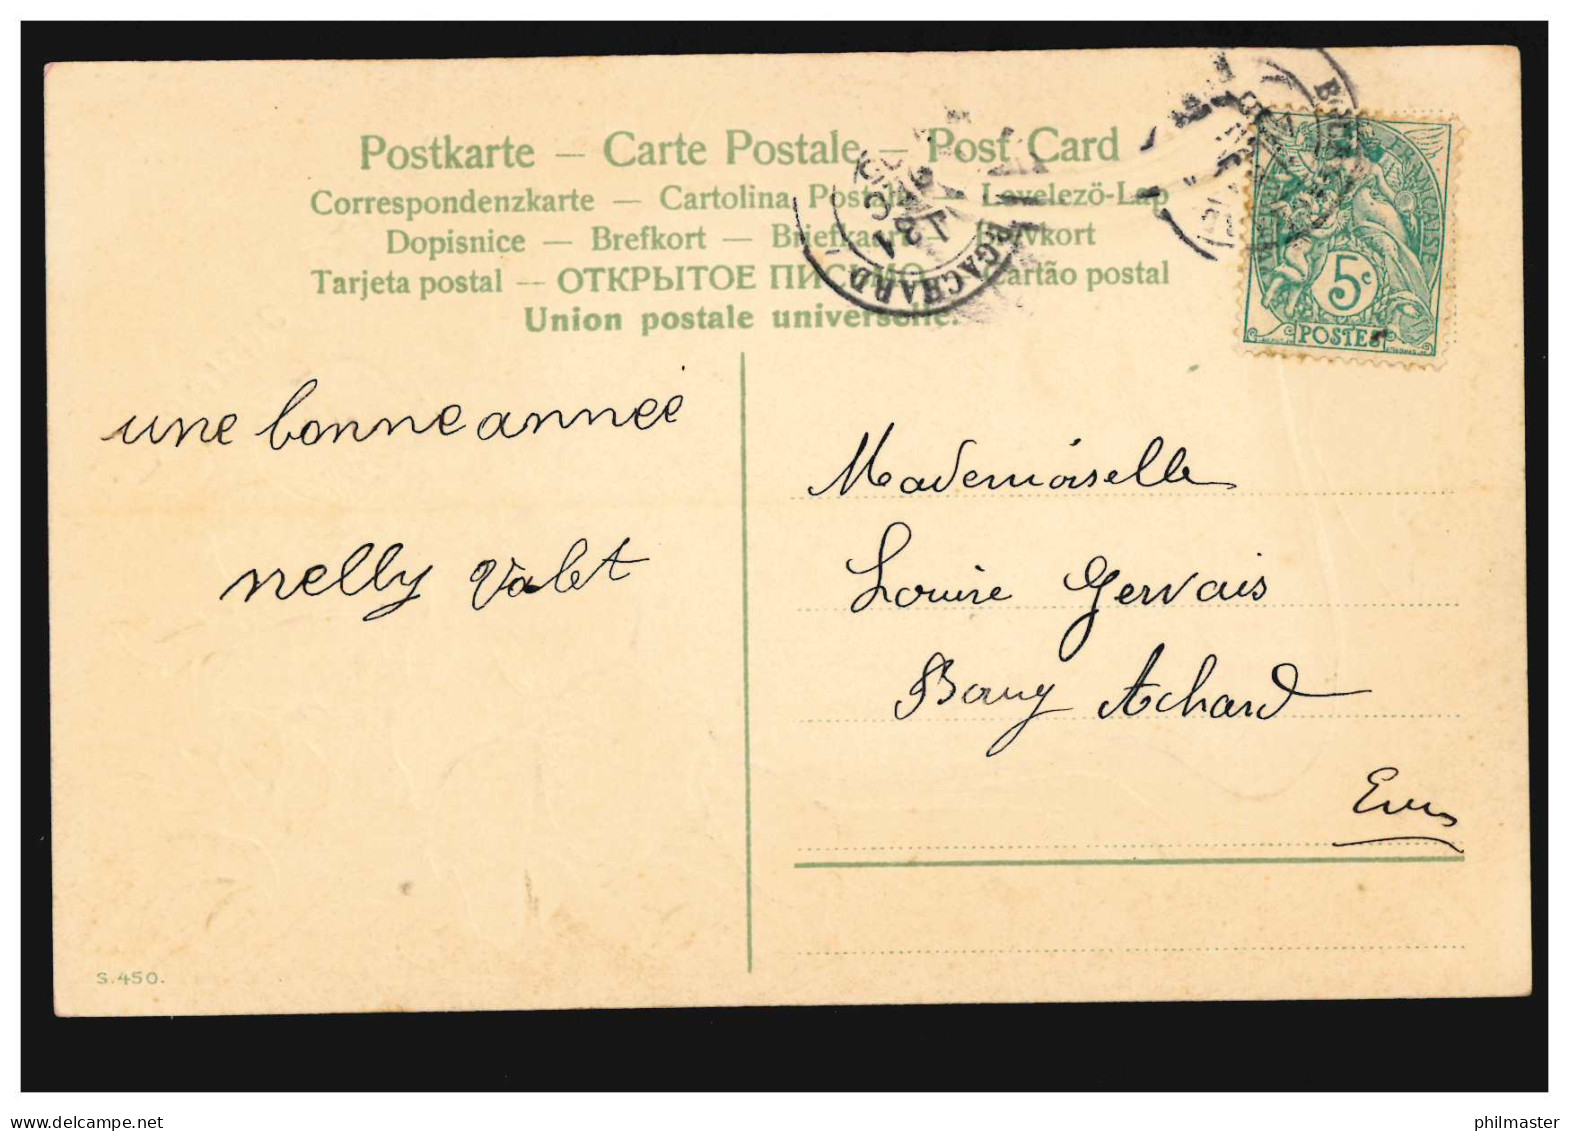 Postkarte — Carte Postale — Post Card
Correspondenzkarte — Cartolina Postale — Levelezö-Lap
Dopisnice — Brefkort — Briefkaart — Brevkort
Tarjeta postal — ОТКРЫТОЕ ПИСЬМО — Cartão postal
Union postale universelle.
31
DEC
GACHARD
FRANÇAISE
5c
POSTES
une bonne année
nelly Valet
Mademoiselle
Louise Gervais
Bourg Achard
Eure
S.450.
www.delcampe.net
philmaster